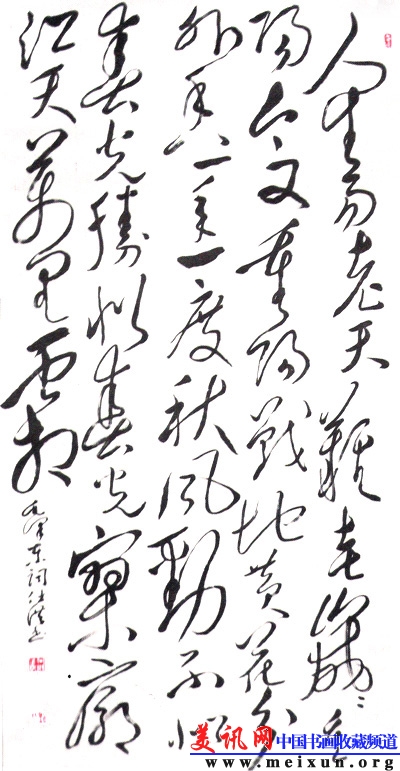 人生易老天難老歲歲重
陽今又重陽戰地黄花分
外香一年一度秋風勁不似
春光勝似春光寥廓
江天萬里霜
毛澤東詞
美讯网 中国书画收藏频道
www.meixun.org